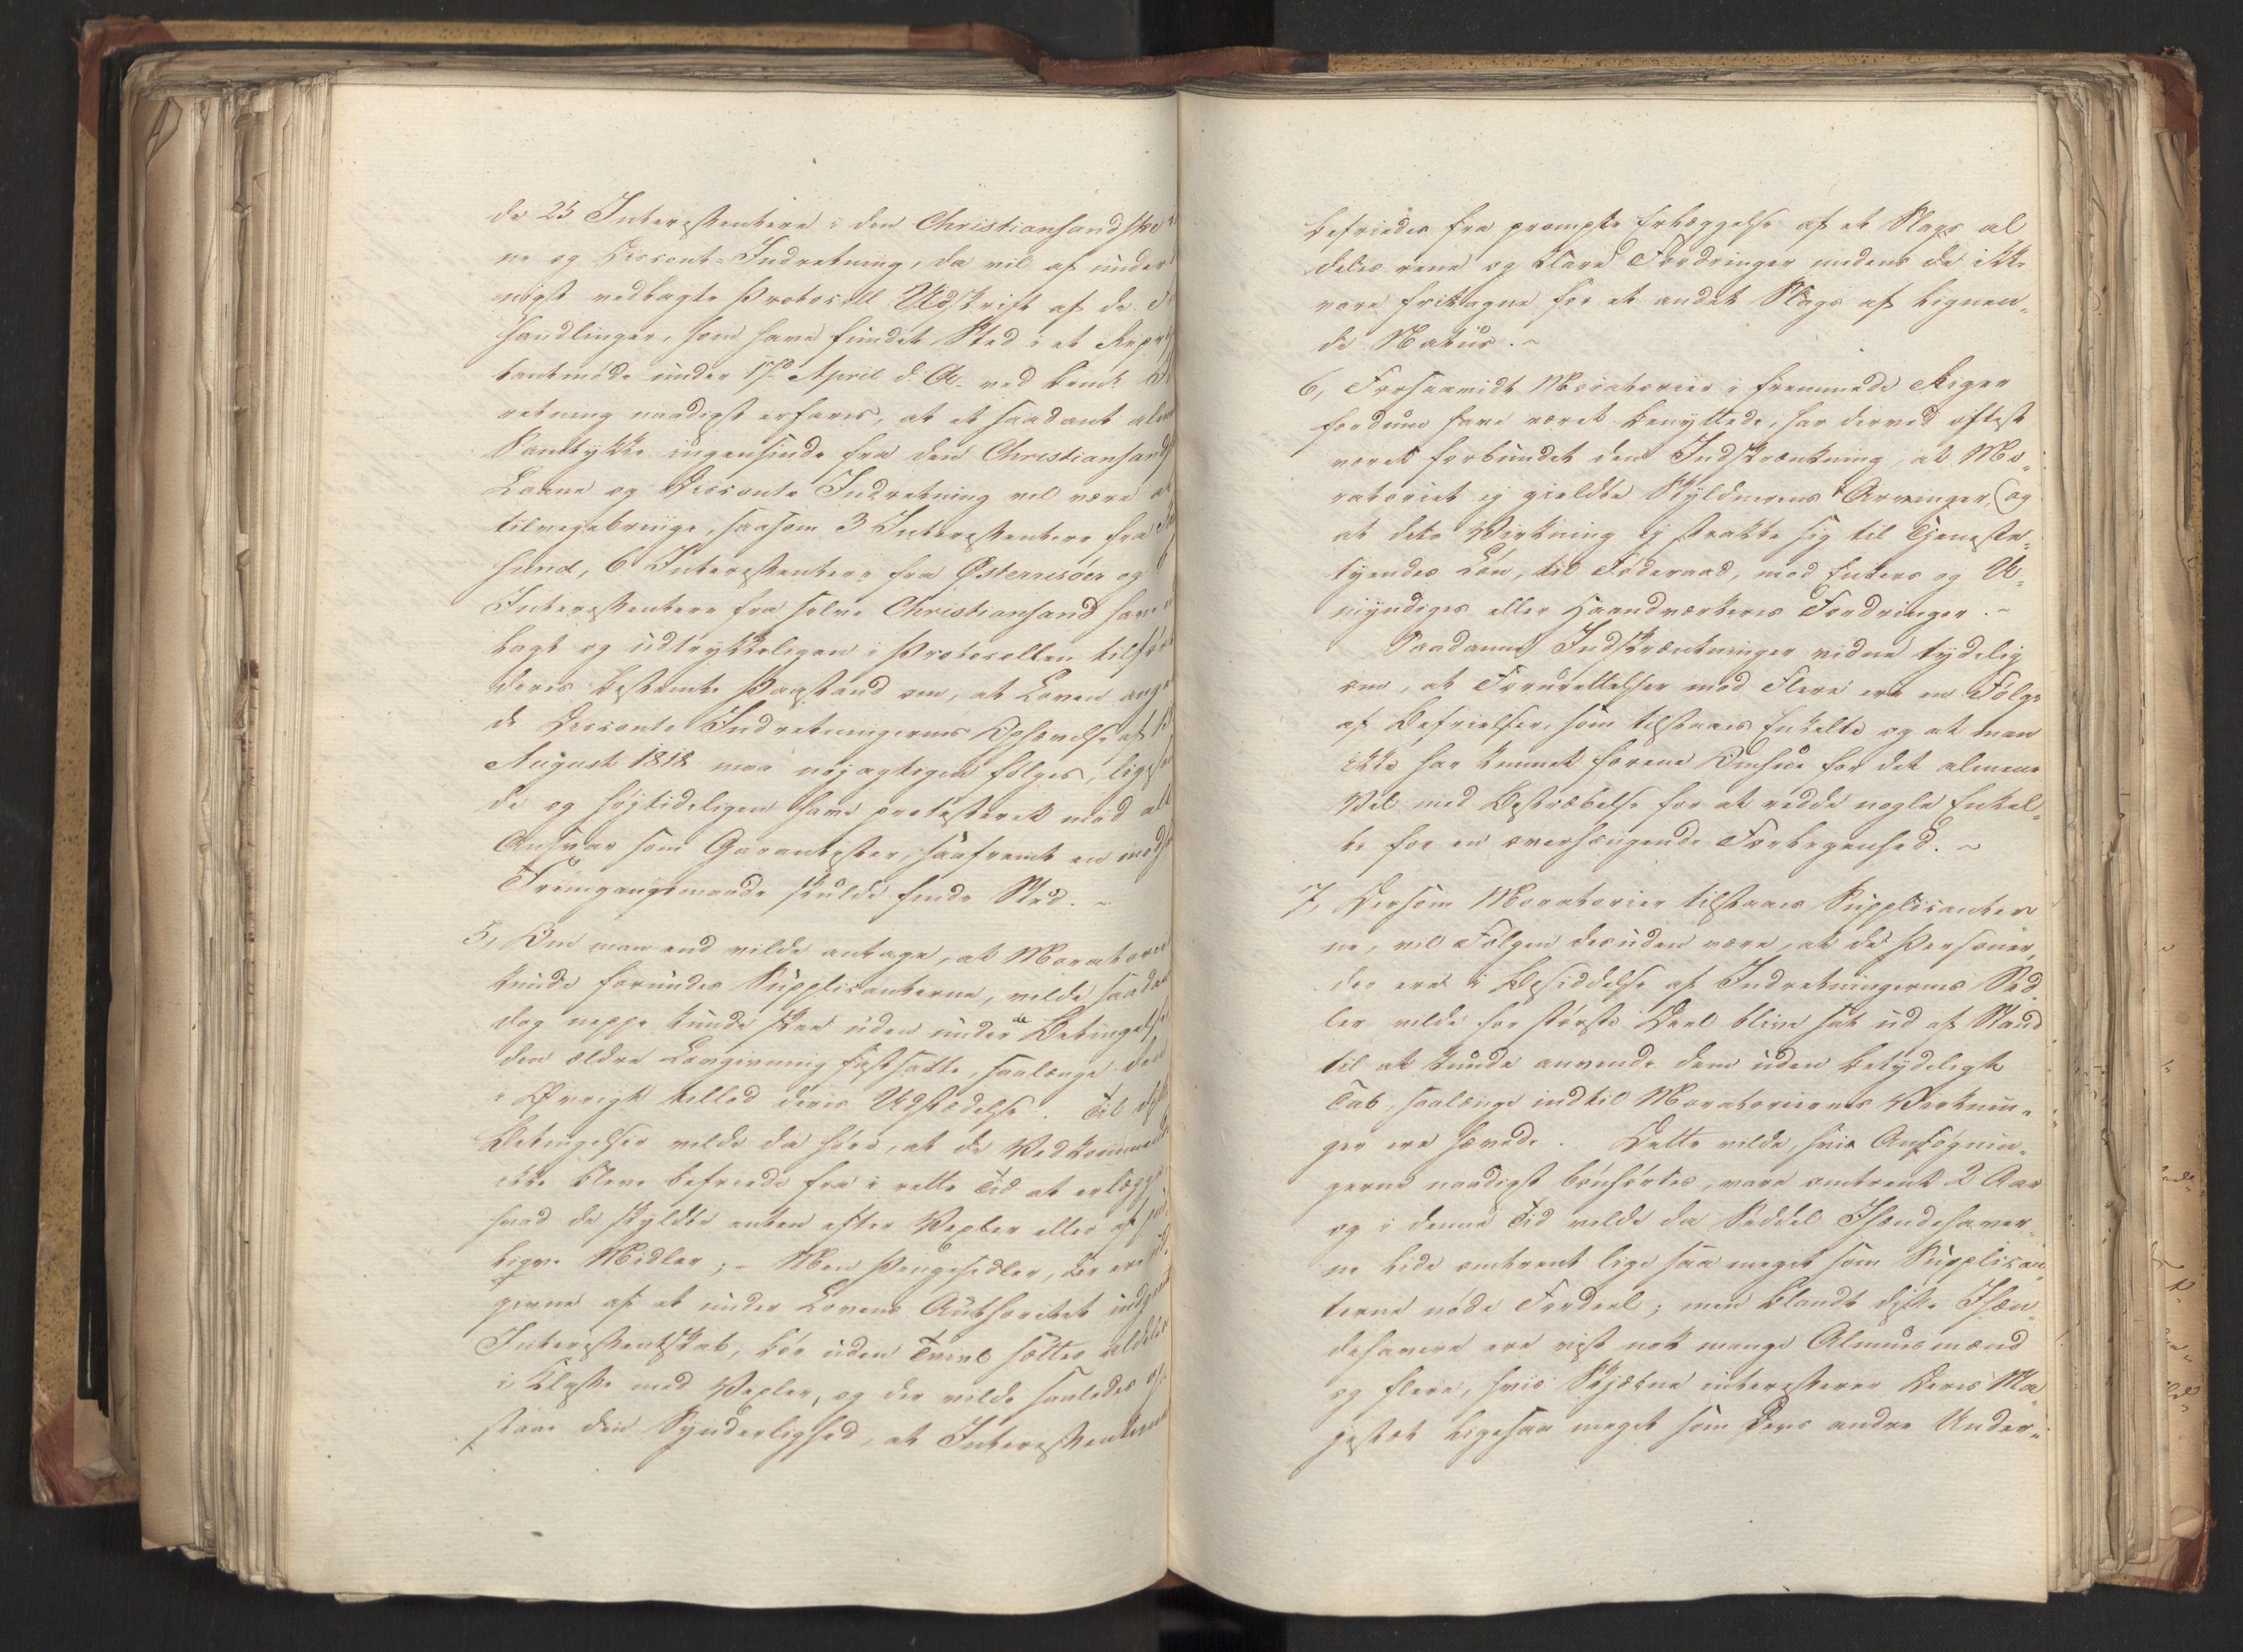 de 25 Interessentere i den Christiansandske
ne og Disconto-Indretning, da vil af under
nigst vedlagte Protocoll Udskrift af de
handlinger, som have fundet Sted i et Repræ
tantmøde under 17de April d: A. ved bemt
retning naadigst erfares, at et saadant
Samtykke ingensinde fra den Christiansands
Laane og Disconto Indretning vil være at
tilvejebringe, saasom 3 Interessentere fra
sund, 6 Interessentere fra Østerrisøer og 6
Interessentere fra selve Christiansand have
lagt og udtrykkeligen i Protocollen tilført
deres bestemte Paastand om, at Loven
de Disconto Indretningernes Ophævelse af 13
August 1818 maa nøjagtigen følges, lige
de og højtideligen have protesteret mod alt
Ansvar som Garantister, saafremt en
Fremgangsmaade skulde finde Sted. ~
5, Om man end vilde antage, at Moratorier
kunde forundes Supplicanterne, vilde saadant
dog neppe kunde skee uden under de Betingelser
den ældre Lovgivning fastsatte, saalænge den
i Øvrigt tillod deres Udstædelse. Til disse
Betingelser vilde da høre, at de Vedkommende
ikke bleve befriede fra i rette Tid at erlægge
hvad de skyldte enten efter Vexler eller af
lige Midler; – Men Pengesedler, der ere
givne af et under Lovens Authoritet
Interessentskab, bør uden Tvivl sættes aldeles
i Klasse med Vexler, og der vilde saaledes op
staae den Synderlighed, at Interessenterne
befriedes fra prompte Erlæggelse af et Slags al
deles rene og klare Fordringer medens de ikke
vare fritagne for et andet Slags af lignen¬
de Natur. ~
6, Forsaavidt Moratorier i fremmede Riger
fordum have været benyttede, har derved oftest
været forbundet den Indskrænkning, at Mo¬
ratoriet ej gieldte Skyldnerens Arvinger, og
at dets Virkning ej strakte sig til Tjeneste¬
tyendes Løn, til Føderaad, mod Enkers og U¬
myndiges eller Haandværkeres Fordringer. ~
Saadanne Indskrænkninger vidne tydelig
om, at Forurettelser mod Flere ere en Følge
af Befrielser, som tilstaaes Enkelte og at man
ikke har kunnet forene Omhue for det almene
Vel med Bestræbelse for at redde nogle Enkel¬
te for en overhængende Forlegenhed. ~
7, Dersom Moratorier tilstaaes Supplicanter
ne, vil Følgen desuden være, at de Personer,
der ere i Besiddelse af Indretningernes Sed
ler vilde for største Deel blive sat ud af Stand
til at kunde anvende dem uden betydeligt
Tab, saalænge indtil Moratoriernes Virknin¬
ger ere hævede. Dette vilde, hvis Ansøgnin¬
gerne naadigst bønhørtes, vare omtrent 2 Aar
og i denne Tid vilde da Seddel Ihændehaver¬
ne lide omtrent lige saa meget som Supplican
terne nøde Fordeel; men blandt disse Ihæn¬
dehavere ere vist nok mange Almuesmænd
og flere, hvis Skjæbne interesserer Deres Ma
jestæt ligesaa meget som Dens andre Under¬